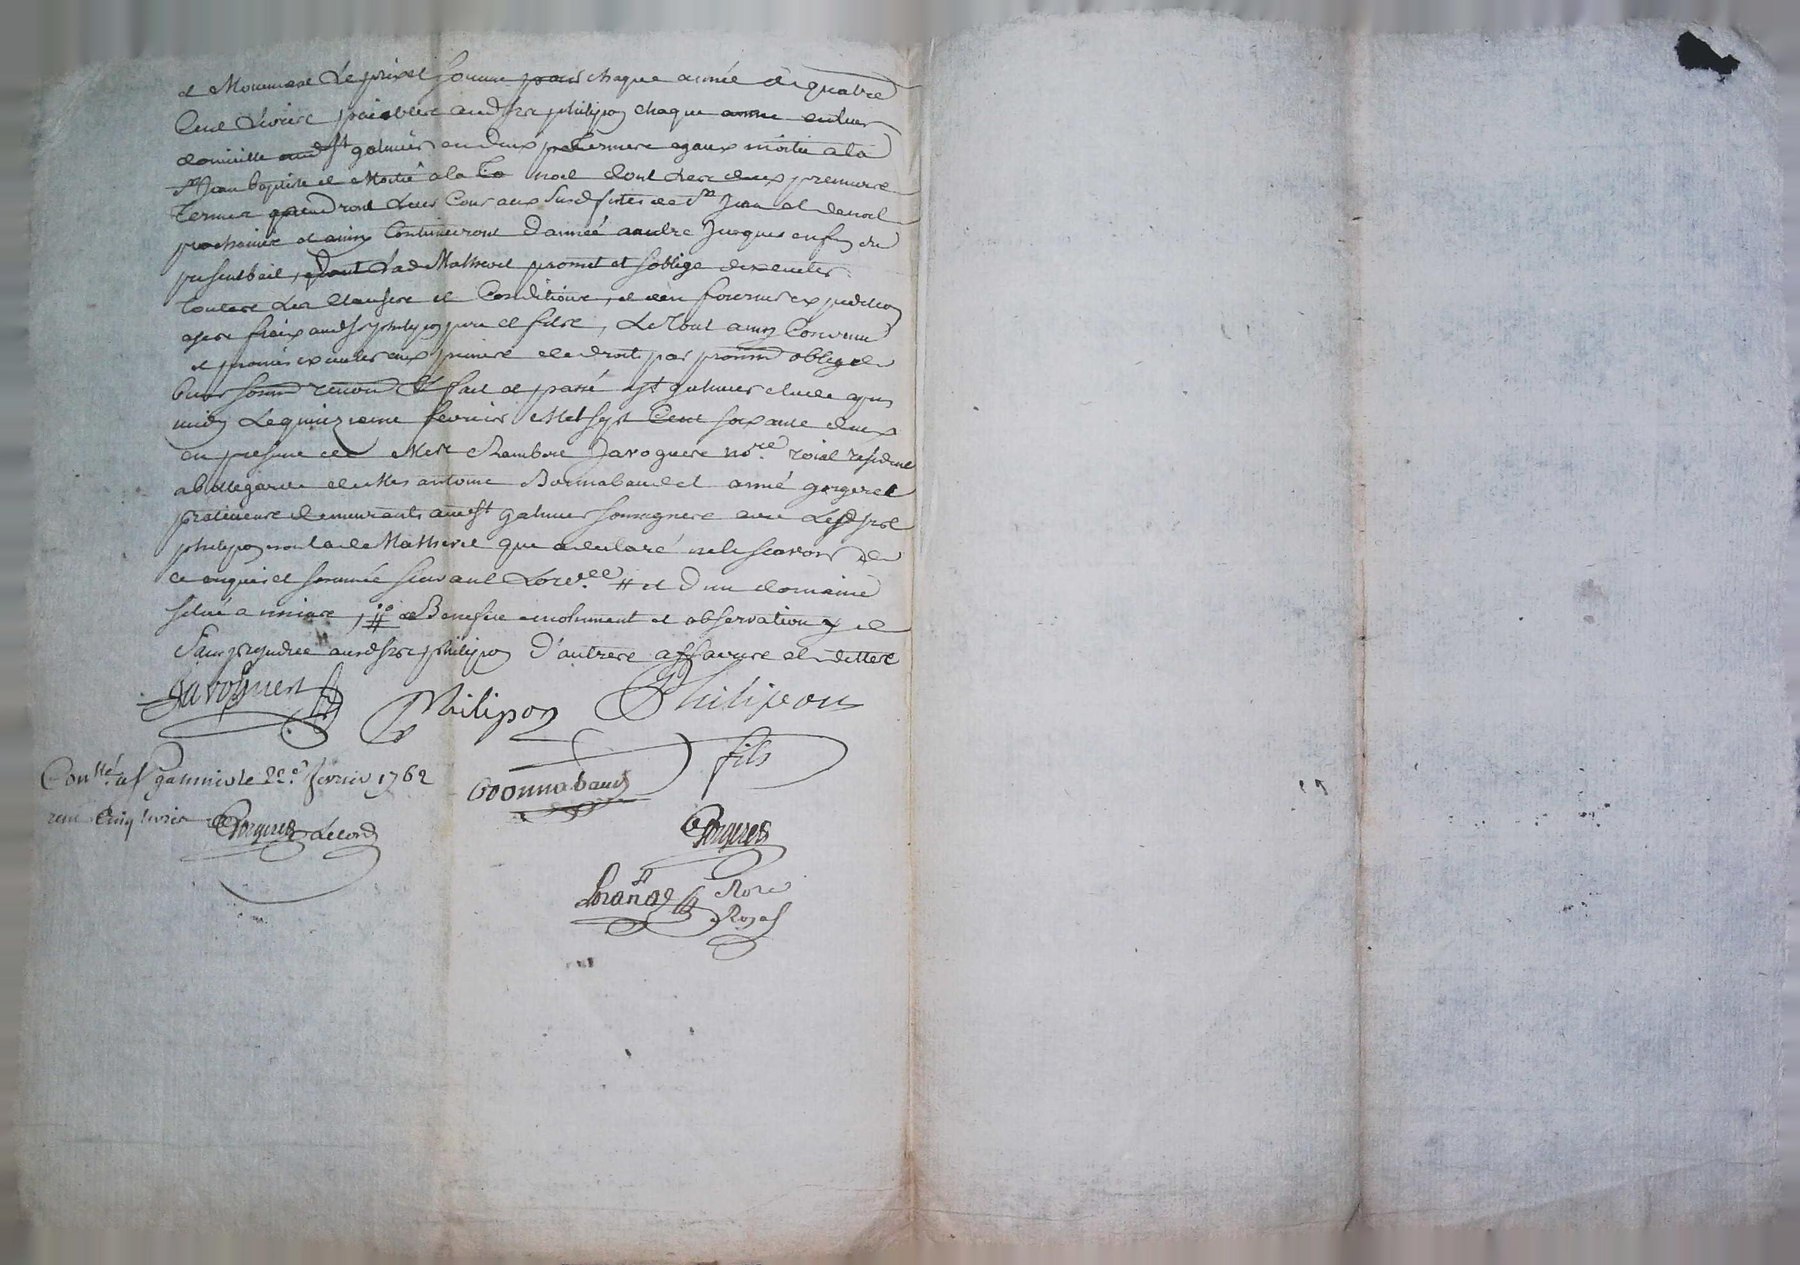 et Moienant le prix et somme pour chaque année de quatre
Cent Livres paiables aud sr philipon chaque année en leur
domicille aud st galmier en deux termes egaux moitié a la
st Jean baptiste et Moitié a la noel dont les deux premiers
Termes prendront Leurs Cours aux susd fetes de st Jean et de noel
prochaines et ainsy Continueront d'année a autre Jusques en fin du
present bail, dont Lad Mathevet promet et soblige dexecuter
toutes Les Clauses et Conditions, et den fournir expedition
a ses fraix aud srs philipon pere et fils, Le Tout ainsy Convenu
et promis executer aux peines de droit par promn obligon
biens soumn renonn &c fait et passé a st galmier etude apres
midy Le quinzieme février Mil sept Cent soixante deux
en presence de Mre Rambert Javogues nore roial residant
a bellegarde et de Mes antoine Bonnabaud et aimé gorgeret
praticiens demeurants aud st galmier soussignes avec Lesd srs
philipon non lad Mathevet que a declaré ne le scavoir de
ce enquis et sommée suivant Lordce # et d'un domaine
situé a , # Benefice emolument et observation y et
Sans prejudice aud srs philipon d'autres affaires et dettes
Javogues Philipon Philipon
fils
Conllé a st galmier le 22e fevrier 1762
Bonnabaud
reçu Cinq livres Gorgeret
Gorgeret
Nore
Royal